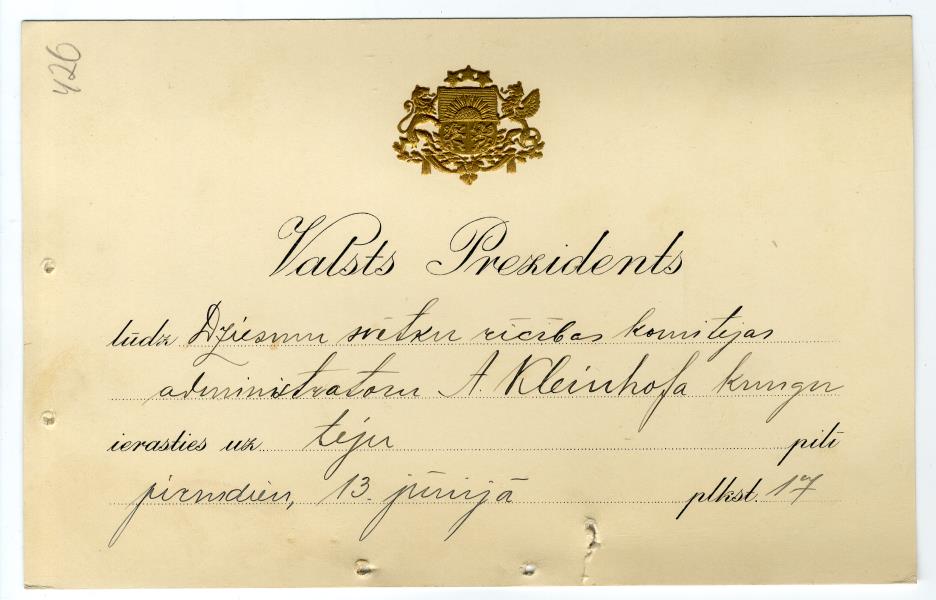 426
Valsts Prezidents
lūdz Dziesmu svētku rīcības komitejas
administratoru A. Kleinhofa kungu
ierasties uz tēju pilī
pirmdien, 13. jūnijā plkst. 17